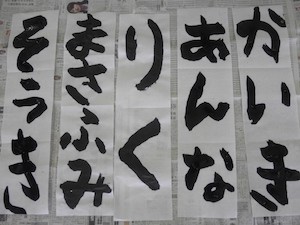 かいき
あんな
りく
まさふみ
そうき